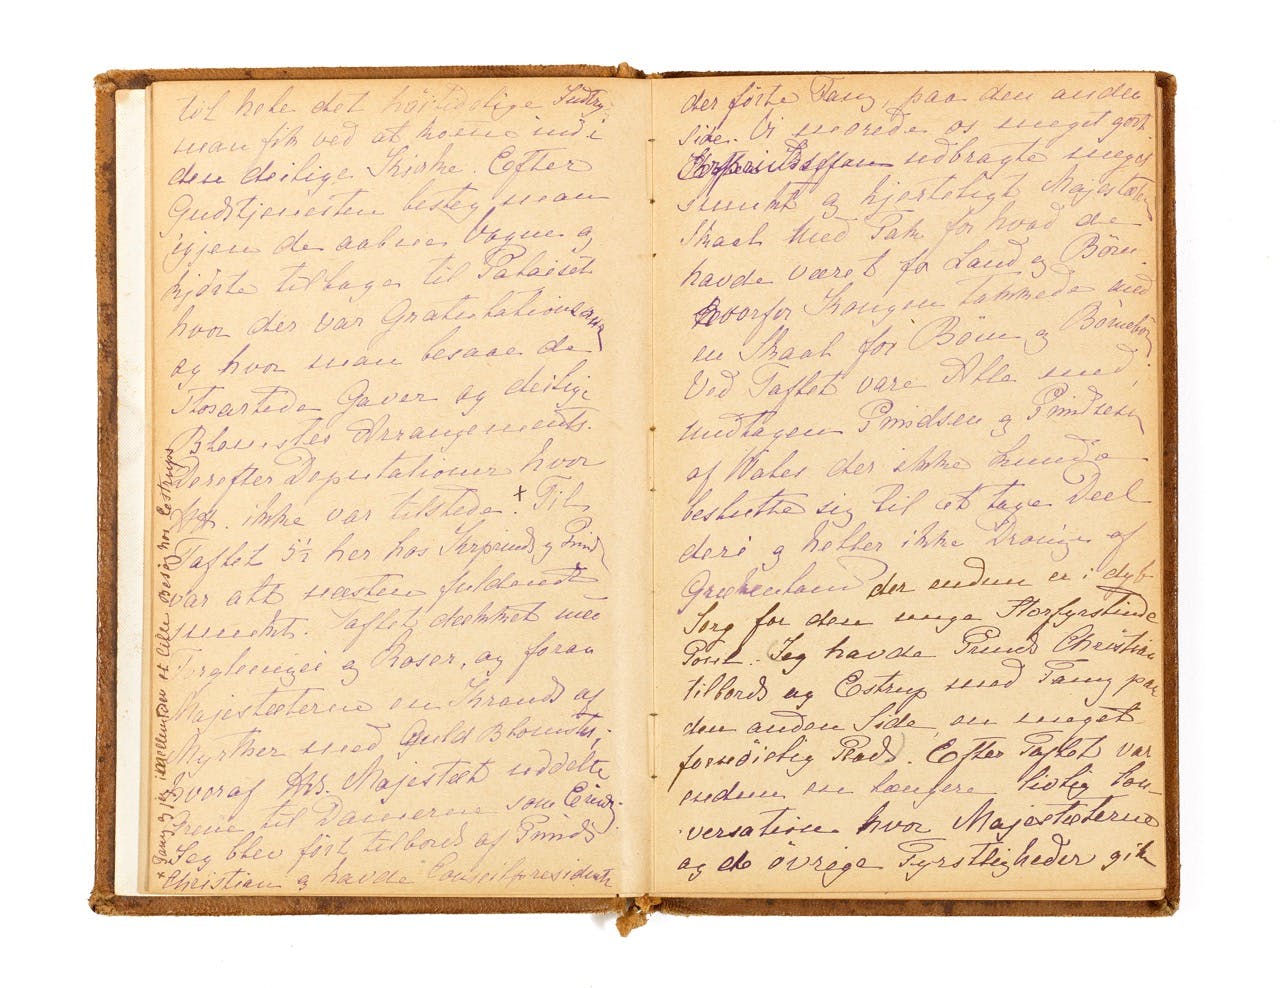 til hele det höitidelige Indtry-
man fik ved at komme ind i
den deilige Kirke. Efter
Gudstjenesten besteg man
igjen de aabne Vogne og
kjörte tilbage til Palaiset
hvor der var Gratulations
og hvor man besaae de
storartede Gaver og deilige
Blomster Arrangements.
Derefter Deputationer hvor
ikke var tilstede. + Til
Taflet 5½ her hos Krprinds og Prinds
var alt næsten fuldendt
smukt. Taflet dækket med
Forglemmigei og Roser, og foran
Majestæterne en Krands af
Myrther med Guld Blomster,
hvoraf Hds. Majestæt uddelte
Grene til Damerne som Erindr.
Jeg blev fört tilbords af Prinds
Christian og havde Conseilpresidente
* Fanny og jeg imellemtiden et lille Besög hos Estrups
der förte Fanny, paa den anden
Side. Vi morede os meget godt.
Kronprindsen udbragte meget
smukt og hjerteligt Majestæter
Skaal med Tak for hvad de
havde været for Land og Börn.
hvorfor Kongen takkede med
en Skaal for Börn og Börnebörn
Ved Taflet vare Alle med,
undtagen Prindsen og Prindsesse
af Wales der ikke kunde
beslutte sig til at tage Deel
deri og heller ikke Dronningen af
Grækenland der endnu er i dyb
Sorg for den unge Storfyrstinde
Jeg havde Prinds Christian
tilbords og Estrup med Fanny paa
den anden Side, en meget
fornöielig Plads. Efter Taflet var
endnu en længere livlig Con-
versation hvor Majestæterne
og de övrige Fyrstligheder gik